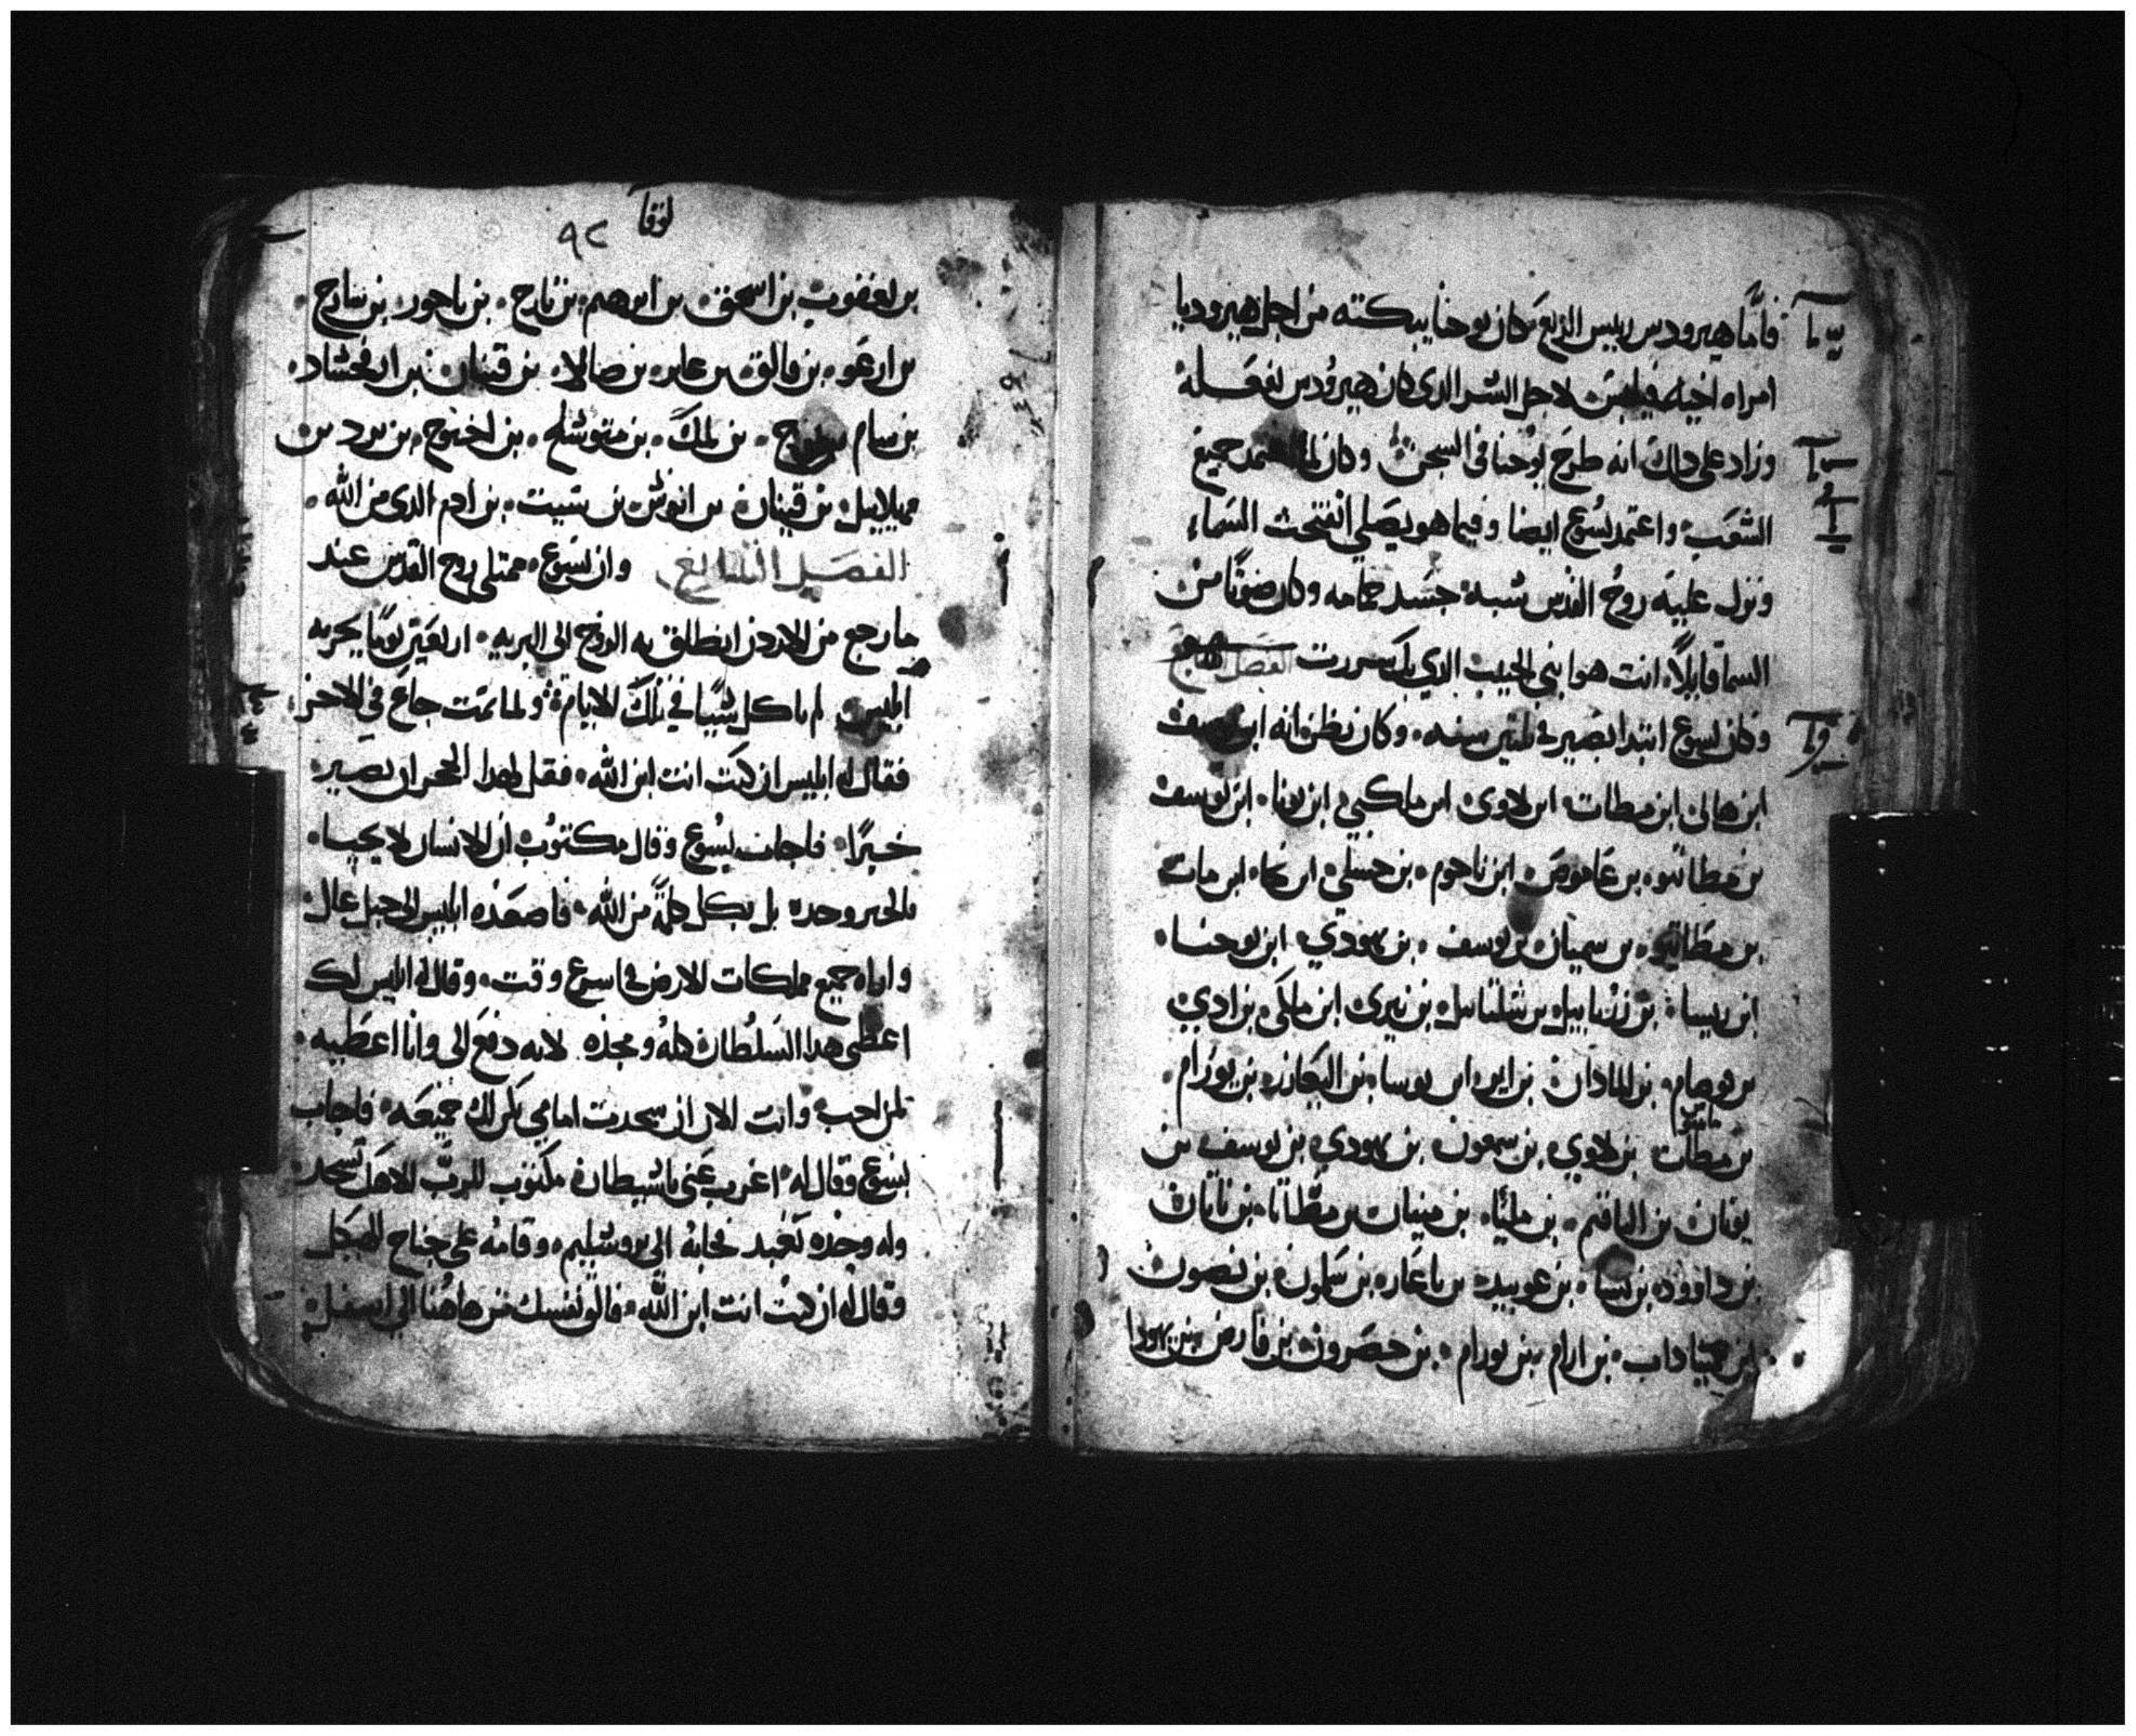 فأما هيرودس رييس الربع فكان يوحنا يبكته من اجل هيروديا
امراه اخيه فيلبس لاجل الشر الدي كان هيرودس يفعله
وزاد على دلك انه طرح يوحنا في السجن وكان لما اعتمد جميع
الشعب واعتمد يسوع ايضا وفيما هو يصلي انفتحت السماء
ونزل عليه روح القدس شبه جسد حمامه وكان صوتا من
السما قايلا انت هو ابني الحبيب الدي بك سررت الفصل
وكان يسوع ابتدا يصير في تلتين سنه وكان يظن انه ابن يوسف
ابن هالي ابن مطات ابن لاوي ابن ملكي ابن يونا ابن يوسف
بن مطاتيو بن عاموص ابن ناحوم بن حسلي ابن نكا ابن مات
بن مطاتيو بن سميان بن يوسف بن يهودي ابن يوحنا
ابن ريسا بن زربابيل بن شلتاييل بن نيري ابن ملكي بن ادي
بن قوصام بن المادان بن اير ابن يوسا بن اليعازر بن يورام
بن مطات بن لاوي بن سمعون بن يهودي بن يوسف بن
يونان بن الياقيم بن مليا بن مينان بن مطاتا بن ناتان
بن داوود بن يسا بن عوبيد بن باعاز بن سلمون بن نصون
بن عميناداب بن ارام بن يورام بن حصرون بن فارص بن يهودا
لوقا
٩٢
بن يعقوب بن اسحق بن ابرهيم بن تارح بن ناحور بن سارح
بن ارعو بن فالق بن عابر بن صالا بن قينان بن ارفخشاد
بن سام بن نوح بن لمك بن متوشلح بن اخنوخ بن يرد بن
مهلاييل بن قينان بن انوش بن شيت بن ادم الدي من الله
الفصل وان يسوع ممتلي روح القدس عند
ما رجع من الاردن انطلق به الروح الى البريه اربعين يوما يجربه
ابليس لم ياكل شيا في تلك الايام ولما تمت جاع في الاخر
فقال له ابليس ان كنت انت ابن الله فقل لهدا الحجر ان يصير
خبزا فاجاب يسوع وقال مكتوب ان الانسان لا يحيا
بالخبز وحده بل بكل كلمة من الله فاصعده ابليس الى جبل عال
واراه جميع مملكات الارض في اسرع وقت وقال له ابليس لك
اعطي هدا السلطان كله ومجده لانه دفع الى وانا اعطيه
لمن احب وانت الان ان سجدت امامي يكن لك جميعه فاجاب
يسوع وقال له اغرب عني يا شيطان مكتوب للرب الاهك تسجد
وله وحده تعبد فجابه الى يروشليم وقامه على جناح الهيكل
وقال له ان كنت انت ابن الله فالق نفسك من هاهنا الى اسفل